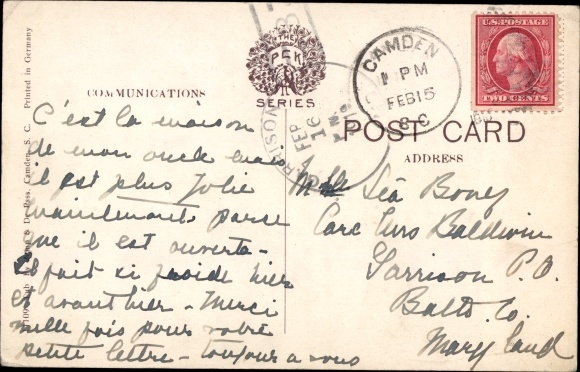 THE
PCK
SERIES
CAMDEN
1 PM
FEB 15
S C
U.S. POSTAGE
TWO CENTS
COMMUNICATIONS
POST CARD
ADDRESS
GARRISON
FEB
16
Printed in Germany
De Pass, Camden, S. C.
C'est la maison
de mon oncle mais
il est plus Jolie
maintenant parse
que il est ouverte-
Il fait si froide hier
et avant hier - Merci
mille fois pour votre
petite lettre - toujours a vous
Mlle Léa Boney
Care Mrs Baldwin
Garrison P.O.
Balto. Co.
Maryland